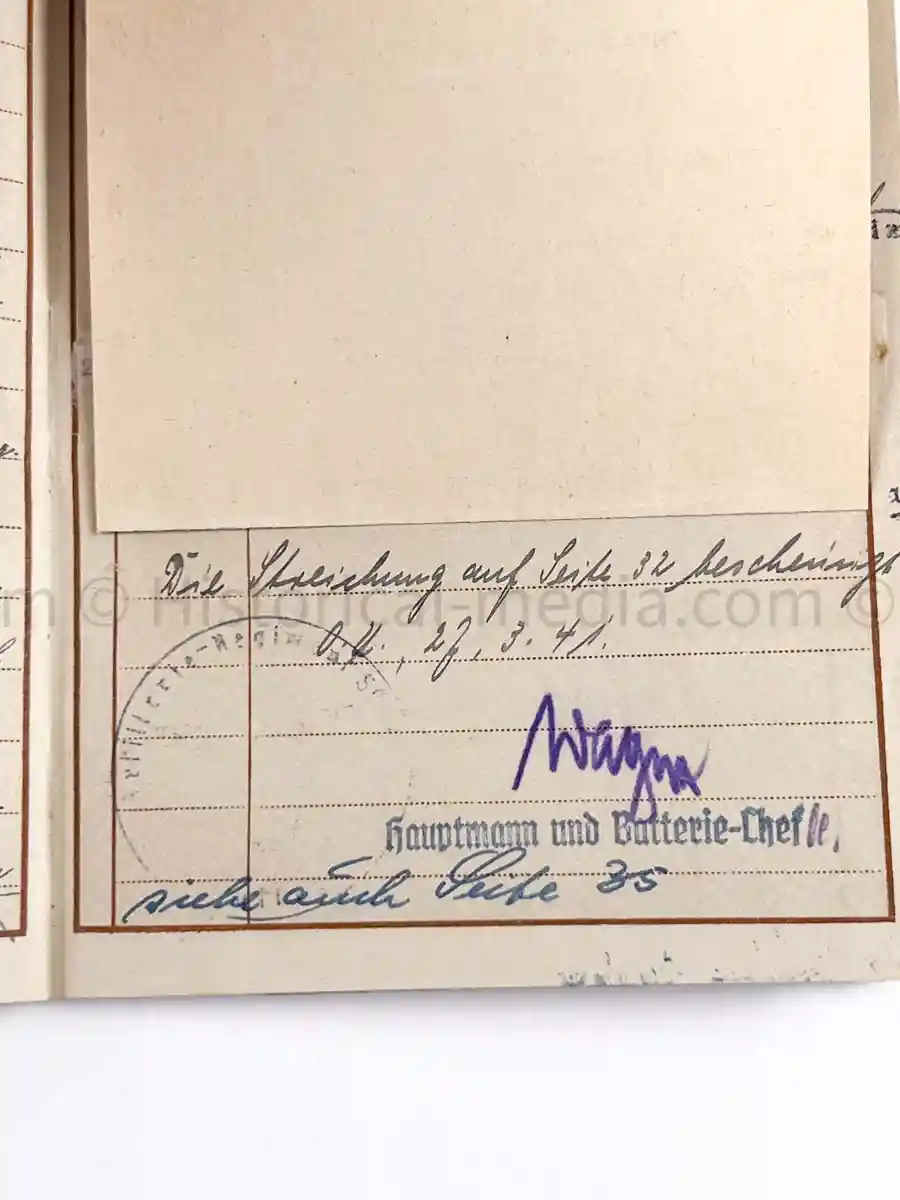 Die Streichung auf Seite 32 bescheinigt
© Historical-media.com ©
O.U., 27, 3. 41.
Artillerie-Regiment
Wagner
Hauptmann und Batterie-Chef
siehe auch Seite 35